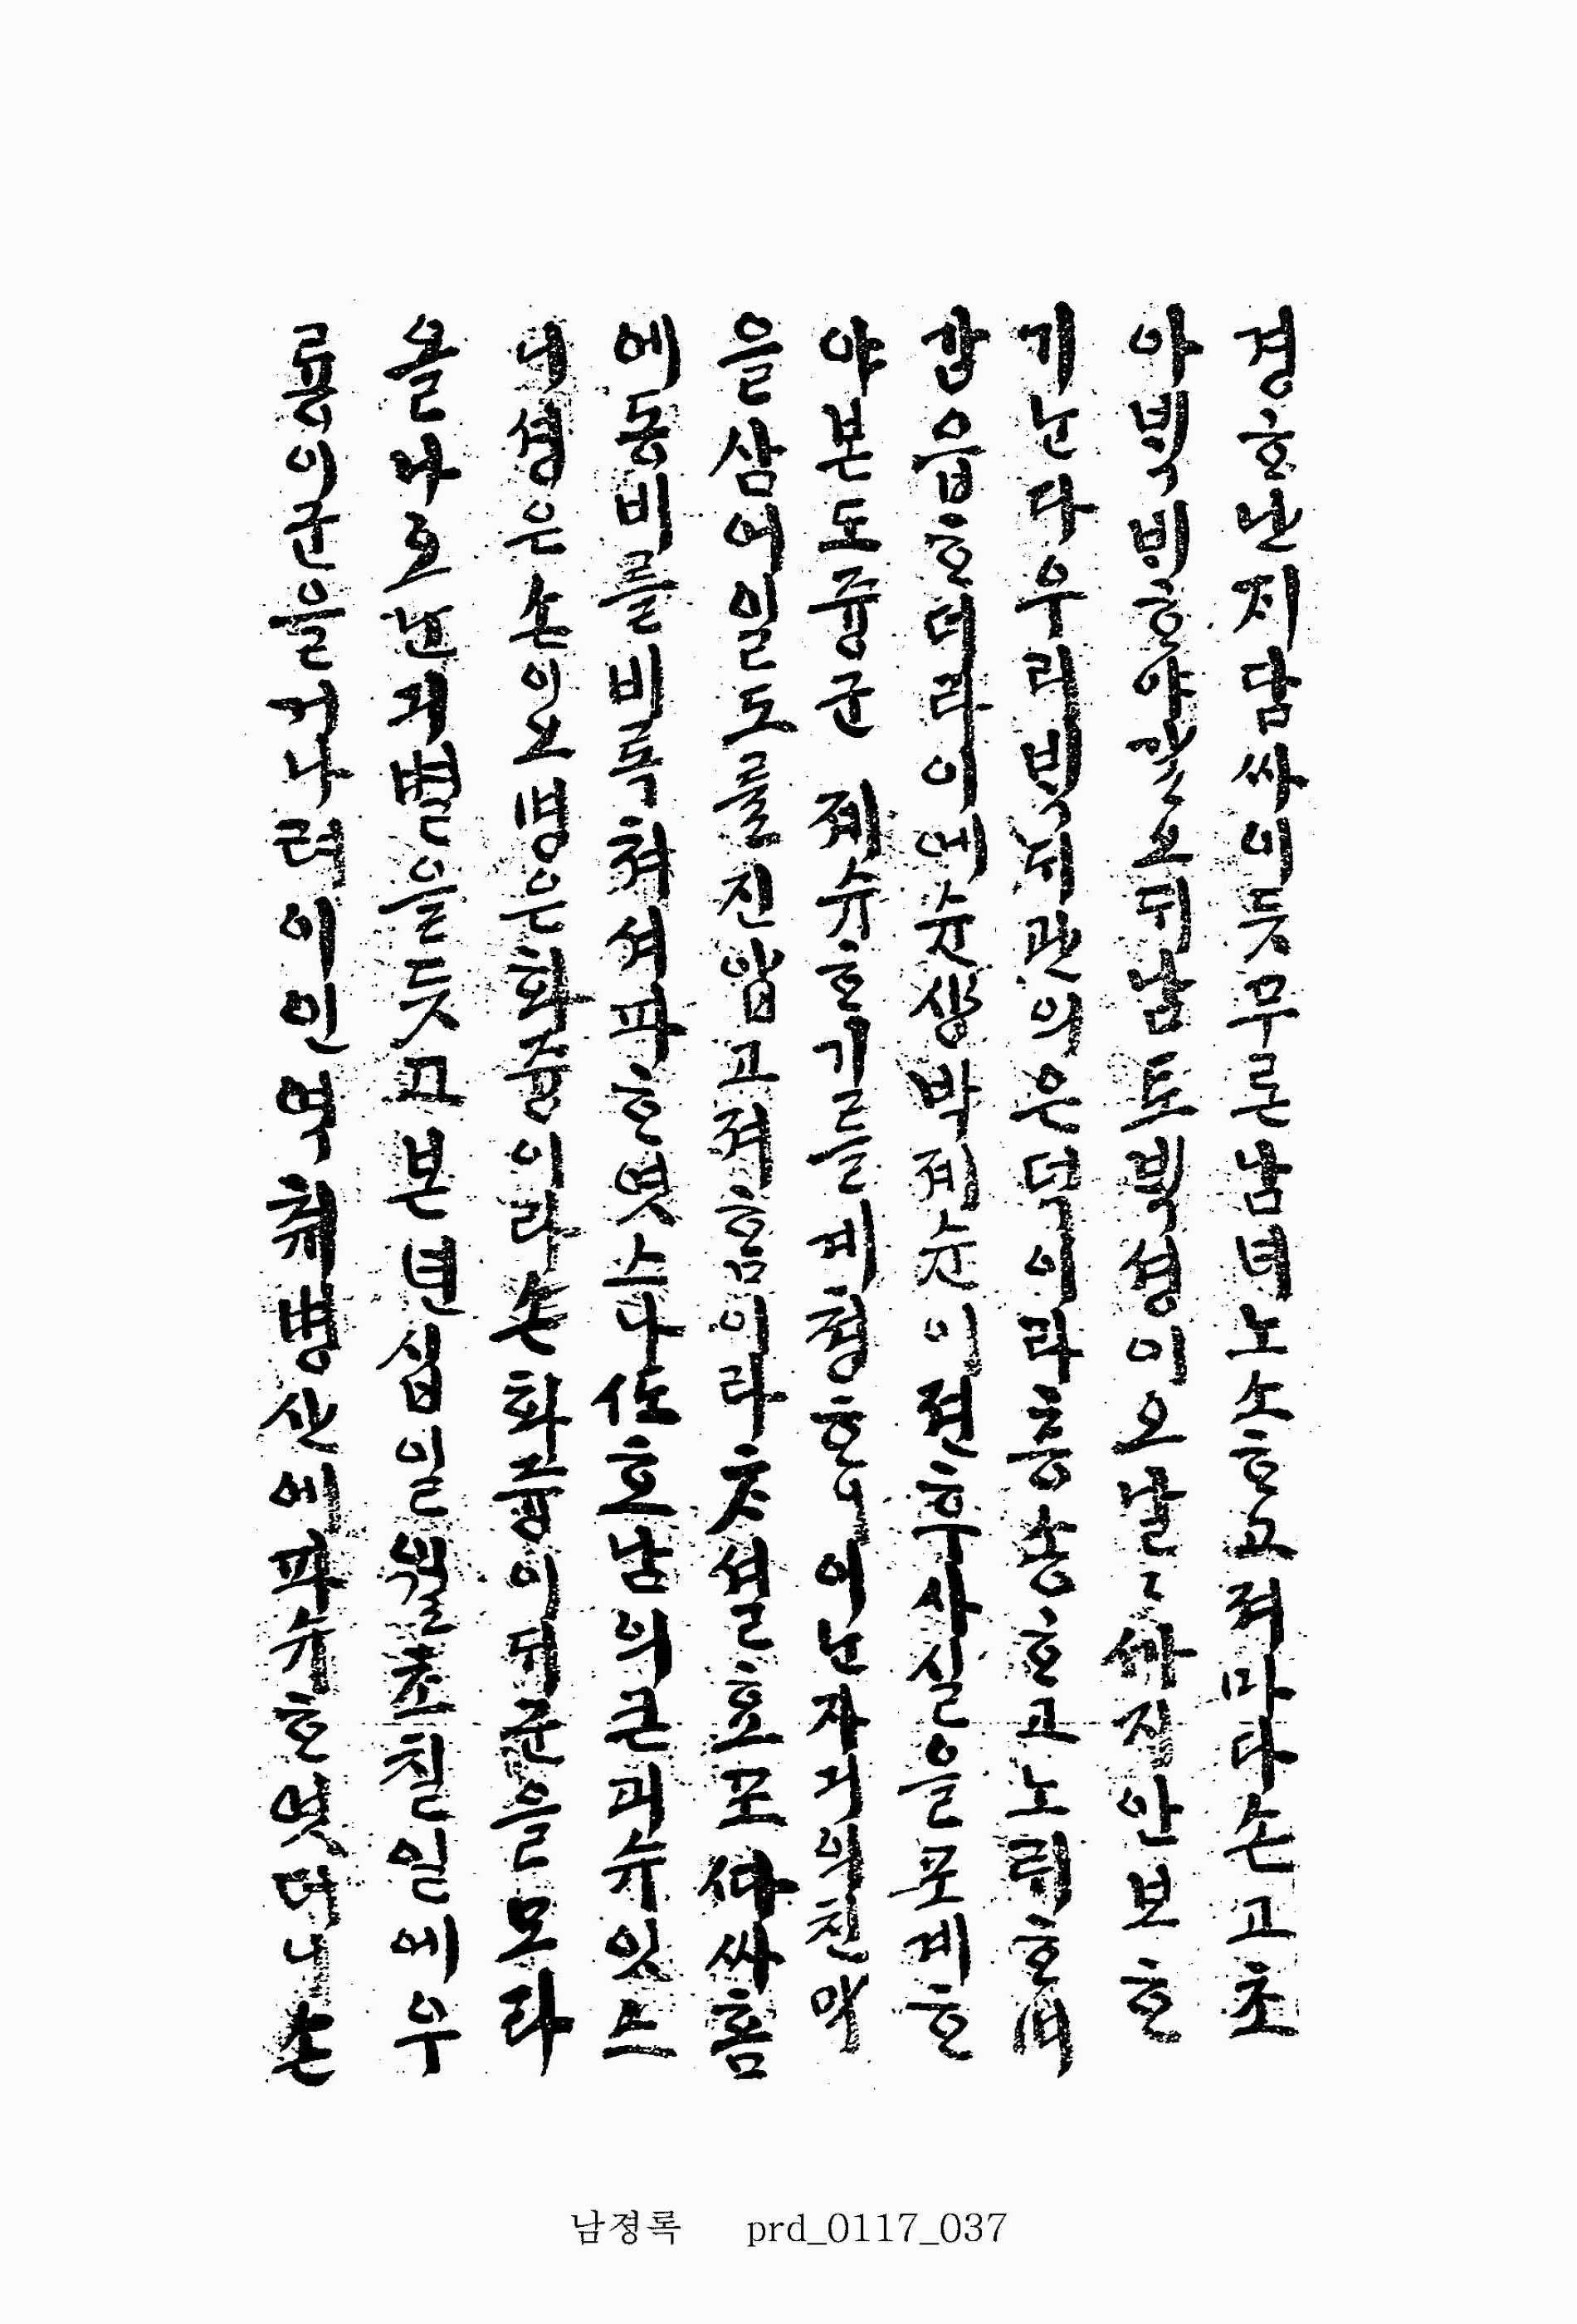 경ᄒᆞ난지담싸이듯무론남녀노소ᄒᆞ고져마다손고초
아ᄇᆡᆨᄇᆡᄒᆞ야갈오ᄃᆡ남토ᄇᆡᆨ셩이오날〻ᄭᆞ지안보ᄒᆞ
기난다우리ᄇᆡᆨᄃᆡ관의은덕이라층송ᄒᆞ고노ᄅᆡᄒᆞ며
감읍ᄒᆞ더라이에슌상박졔슌이젼후사실을포계ᄒᆞ
야본도즁군 졔슈ᄒᆞ기를계쳥ᄒᆞ니이난자긔의친막
을삼어일도를진압고져ᄒᆞᆷ이라ᄎᆞ셜효포ᄯᅡ싸홈
에동비를비록쳐셔파ᄒᆞ엿스나ᄯᅩ호남의큰괴슈잇스
니셩은손이오명은화즁이라손화즁이ᄃᆡ군을모라
올나오난긔별을듯고본년십일월초칠일에우
룡이군을거나려이인역취병산에파슈ᄒᆞ엿더니손
남졍록 prd_0117_037